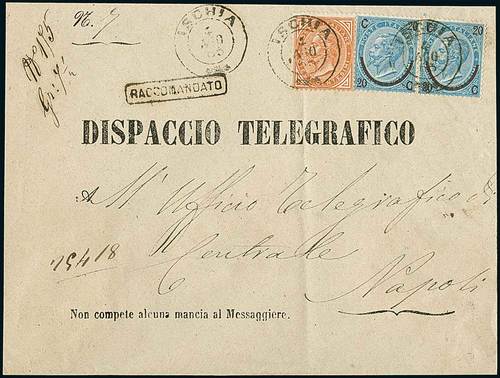 N. 7
ISCHIA
ISCHIA
C 20
20 C
20
20 C
RACCOMANDATO
DISPACCIO TELEGRAFICO
A
All' Ufficio Telegrafico di
Centrale
Napoli
Non compete alcuna mancia al Messaggiere.